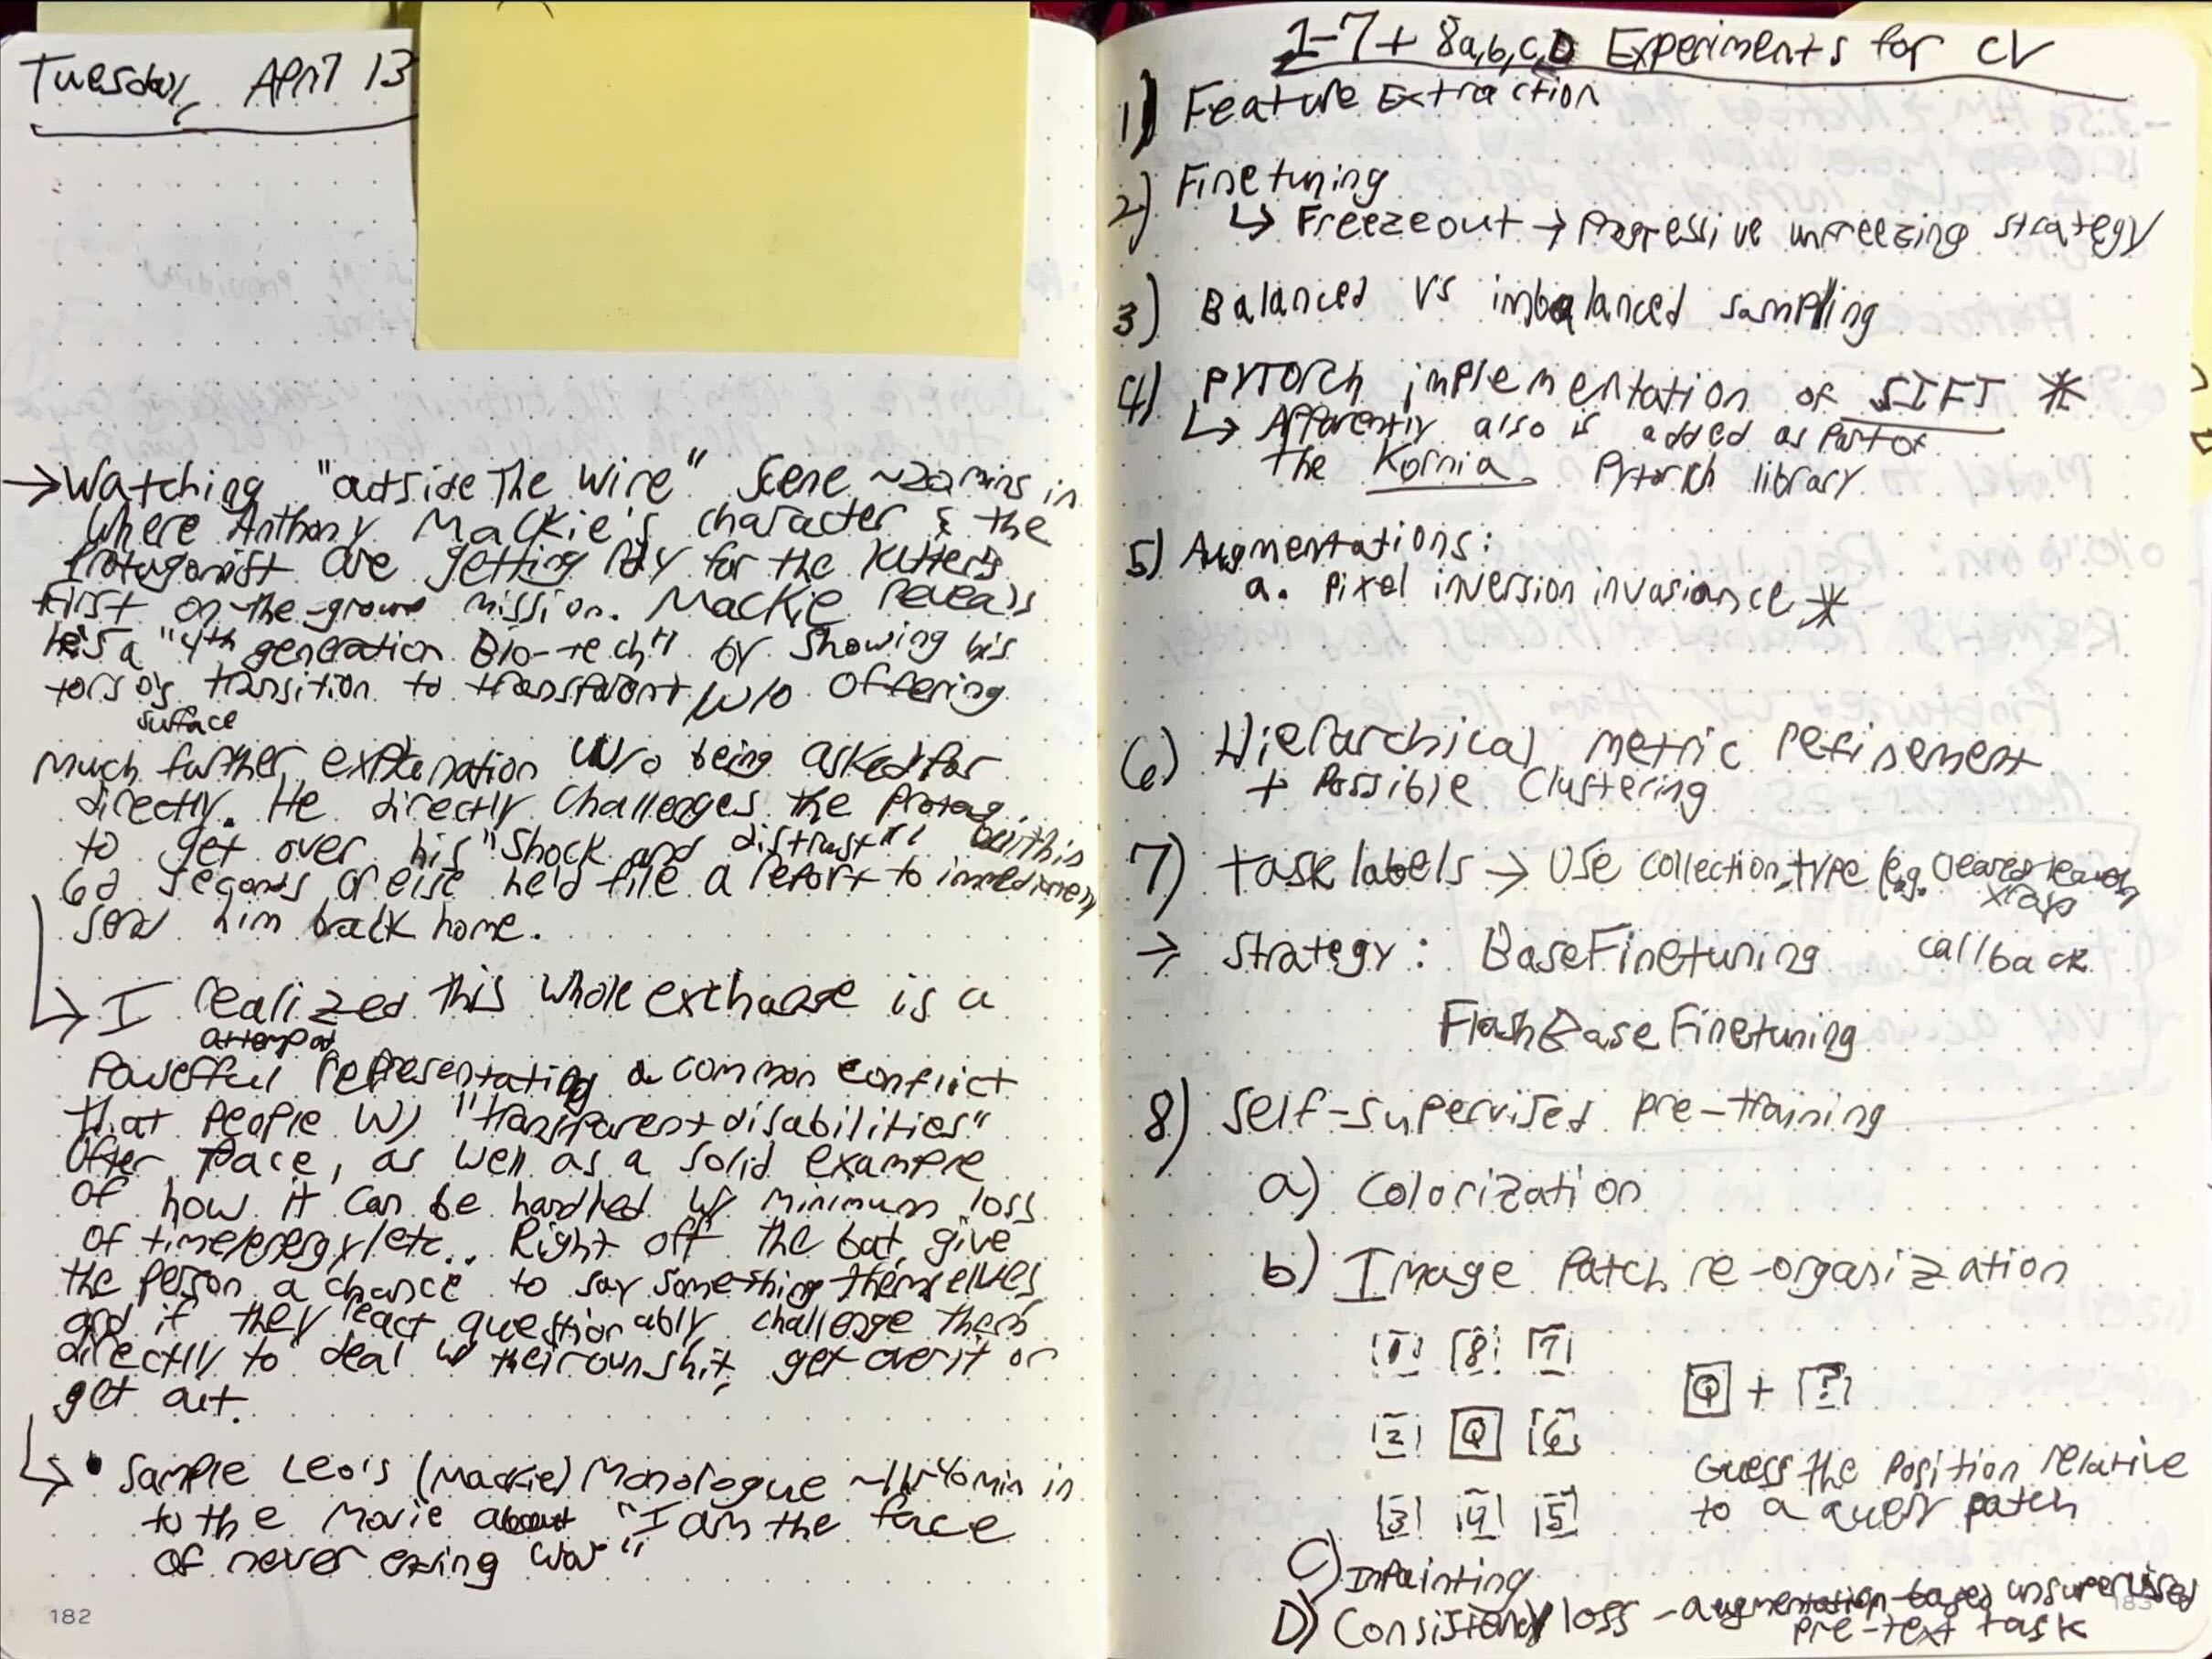 Tuesday, April 13
→ Watching "outside The Wire" Scene ~20 mins in
Where Anthony Mackie's character & the
Protagonist are getting rdy for the latter's
first on-the-ground mission. Mackie reveals
he's a "4th generation Bio-tech" by showing his
torso's transition to transparent w/o offering
surface
much further explanation w/o being asked for
directly. He directly challenges the protag.
to get over his "shock and distrust" within
60 seconds or else he'd file a report to immediately
send him back home.
↳ I realized this whole exchange is a
attempt at
Powerful representating a common conflict
that people w/ "transparent disabilities"
often face, as well as a solid example
of how it can be handled w/ minimum loss
of time/energy/etc.. Right off the bat, give
the person a chance to say something themselves,
and if they react questionably, challenge them
directly to deal w/ their own shit, get over it or
get out.
↳ • Sample Leo's (Mackie) Monologue ~ min in
to the movie about "I am the face
of never ending war"
182
1-7 + 8a,b,c,D Experiments for CV
1) Feature Extraction
2) Finetuning
↳ Freezeout → Progressive unfreezing strategy
3) Balanced vs imbalanced sampling
4) PyTorch implementation of SIFT *
↳ Apparently also is added as part of
the Kornia Pytorch library
5) Augmentations:
a. Pixel inversion invariance *
6) Hierarchical metric refinement
+ Possible Clustering
7) task labels → Use collection type (e.g. cleared leaves,
xrays
→ Strategy: BaseFinetuning callback
FlashBaseFinetuning
8) Self-supervised pre-training
a) Colorization
b) Image Patch re-organization
1 8 7
Q + ?
2 Q 6
Guess the position relative
to a query patch
3 4 5
C) Inpainting
D) Consistency loss - augmentation-based unsupervised
pre-text task
183